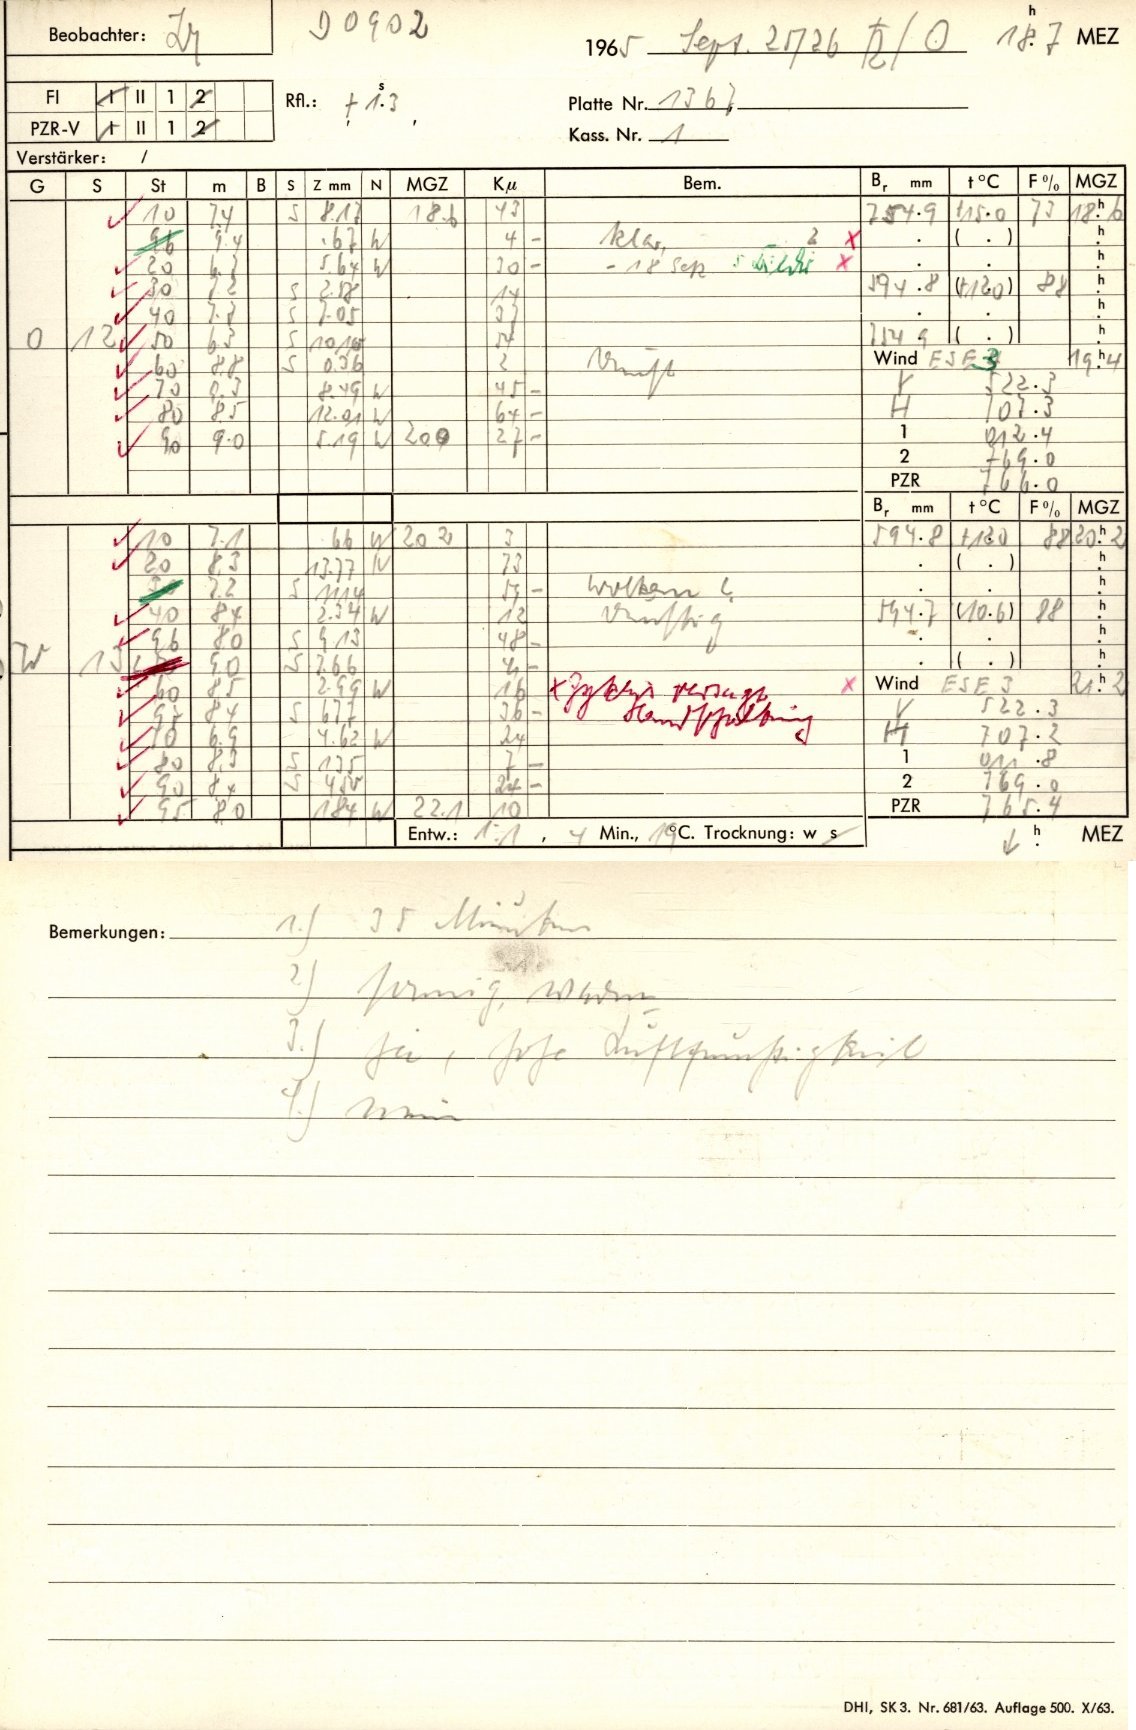 Beobachter:
D0902
1965 Sept. 25/26 18h.7 MEZ
FI I II 1 2
Rfl.: + 1s.3
Platte Nr. 1367
PZR-V I II 1 2
Kass. Nr. 1
Verstärker: /
G S St m B S Z mm N MGZ Kµ Bem. Br mm t °C F % MGZ
10 7.4 S 8.17 18.6 43 754.9 +15.0 73 18h.6
9.4 .67 W 4 - klar, 2 x . ( . ) h.
20 5.64 W 30 - - 18 Sek x . . h.
30 7.2 S 2.58 14 594.8 (+12.0) 88 h.
40 7.8 S 7.05 37 . . h.
O 12 50 6.5 S 10.10 54 754 9 ( . ) h.
60 8.8 S 0.36 2 Dunst Wind ESE 3 19h.4
70 8.3 8.49 W 45 - V 522.3
80 8.5 12.01 W 64 - H 707.3
90 9.0 5.19 W 20 0 27 - 1 012.4
2 769.0
PZR 766.0
Br mm t °C F % MGZ
10 7.1 .66 W 20 2 3 594.8 +12.0 88 20h.2
20 8.3 13.77 W 73 . ( . ) h.
7.2 S 11 14 59 - Wolken . . h.
40 8.4 2.34 W 12 dunstig 594.7 (10.6) 88 h.
96 8.0 S 9.13 48 - . . h.
W 13 9.0 S 7.66 - . ( . ) h.
60 8.5 2.99 W 16 x Zyklus versagt x Wind ESE 3 21h.2
95 8.4 S 6.77 36 - Handschaltung V 522.3
70 6.9 4.62 W 24 H 707.2
80 8.3 S 1 35 7 - 1 011.8
90 8.4 S 4 50 24 - 2 769.0
95 8.0 1 84 W 22.1 10 PZR 765.4
Entw.: 1:1 , 4 Min., 19°C. Trocknung: w s h. MEZ
Bemerkungen: 1.) 35 Minuten
2) sonnig, warm
3.) ja, hohe Luftfeuchtigkeit
4.) nein
DHI, SK 3. Nr. 681/63. Auflage 500. X/63.